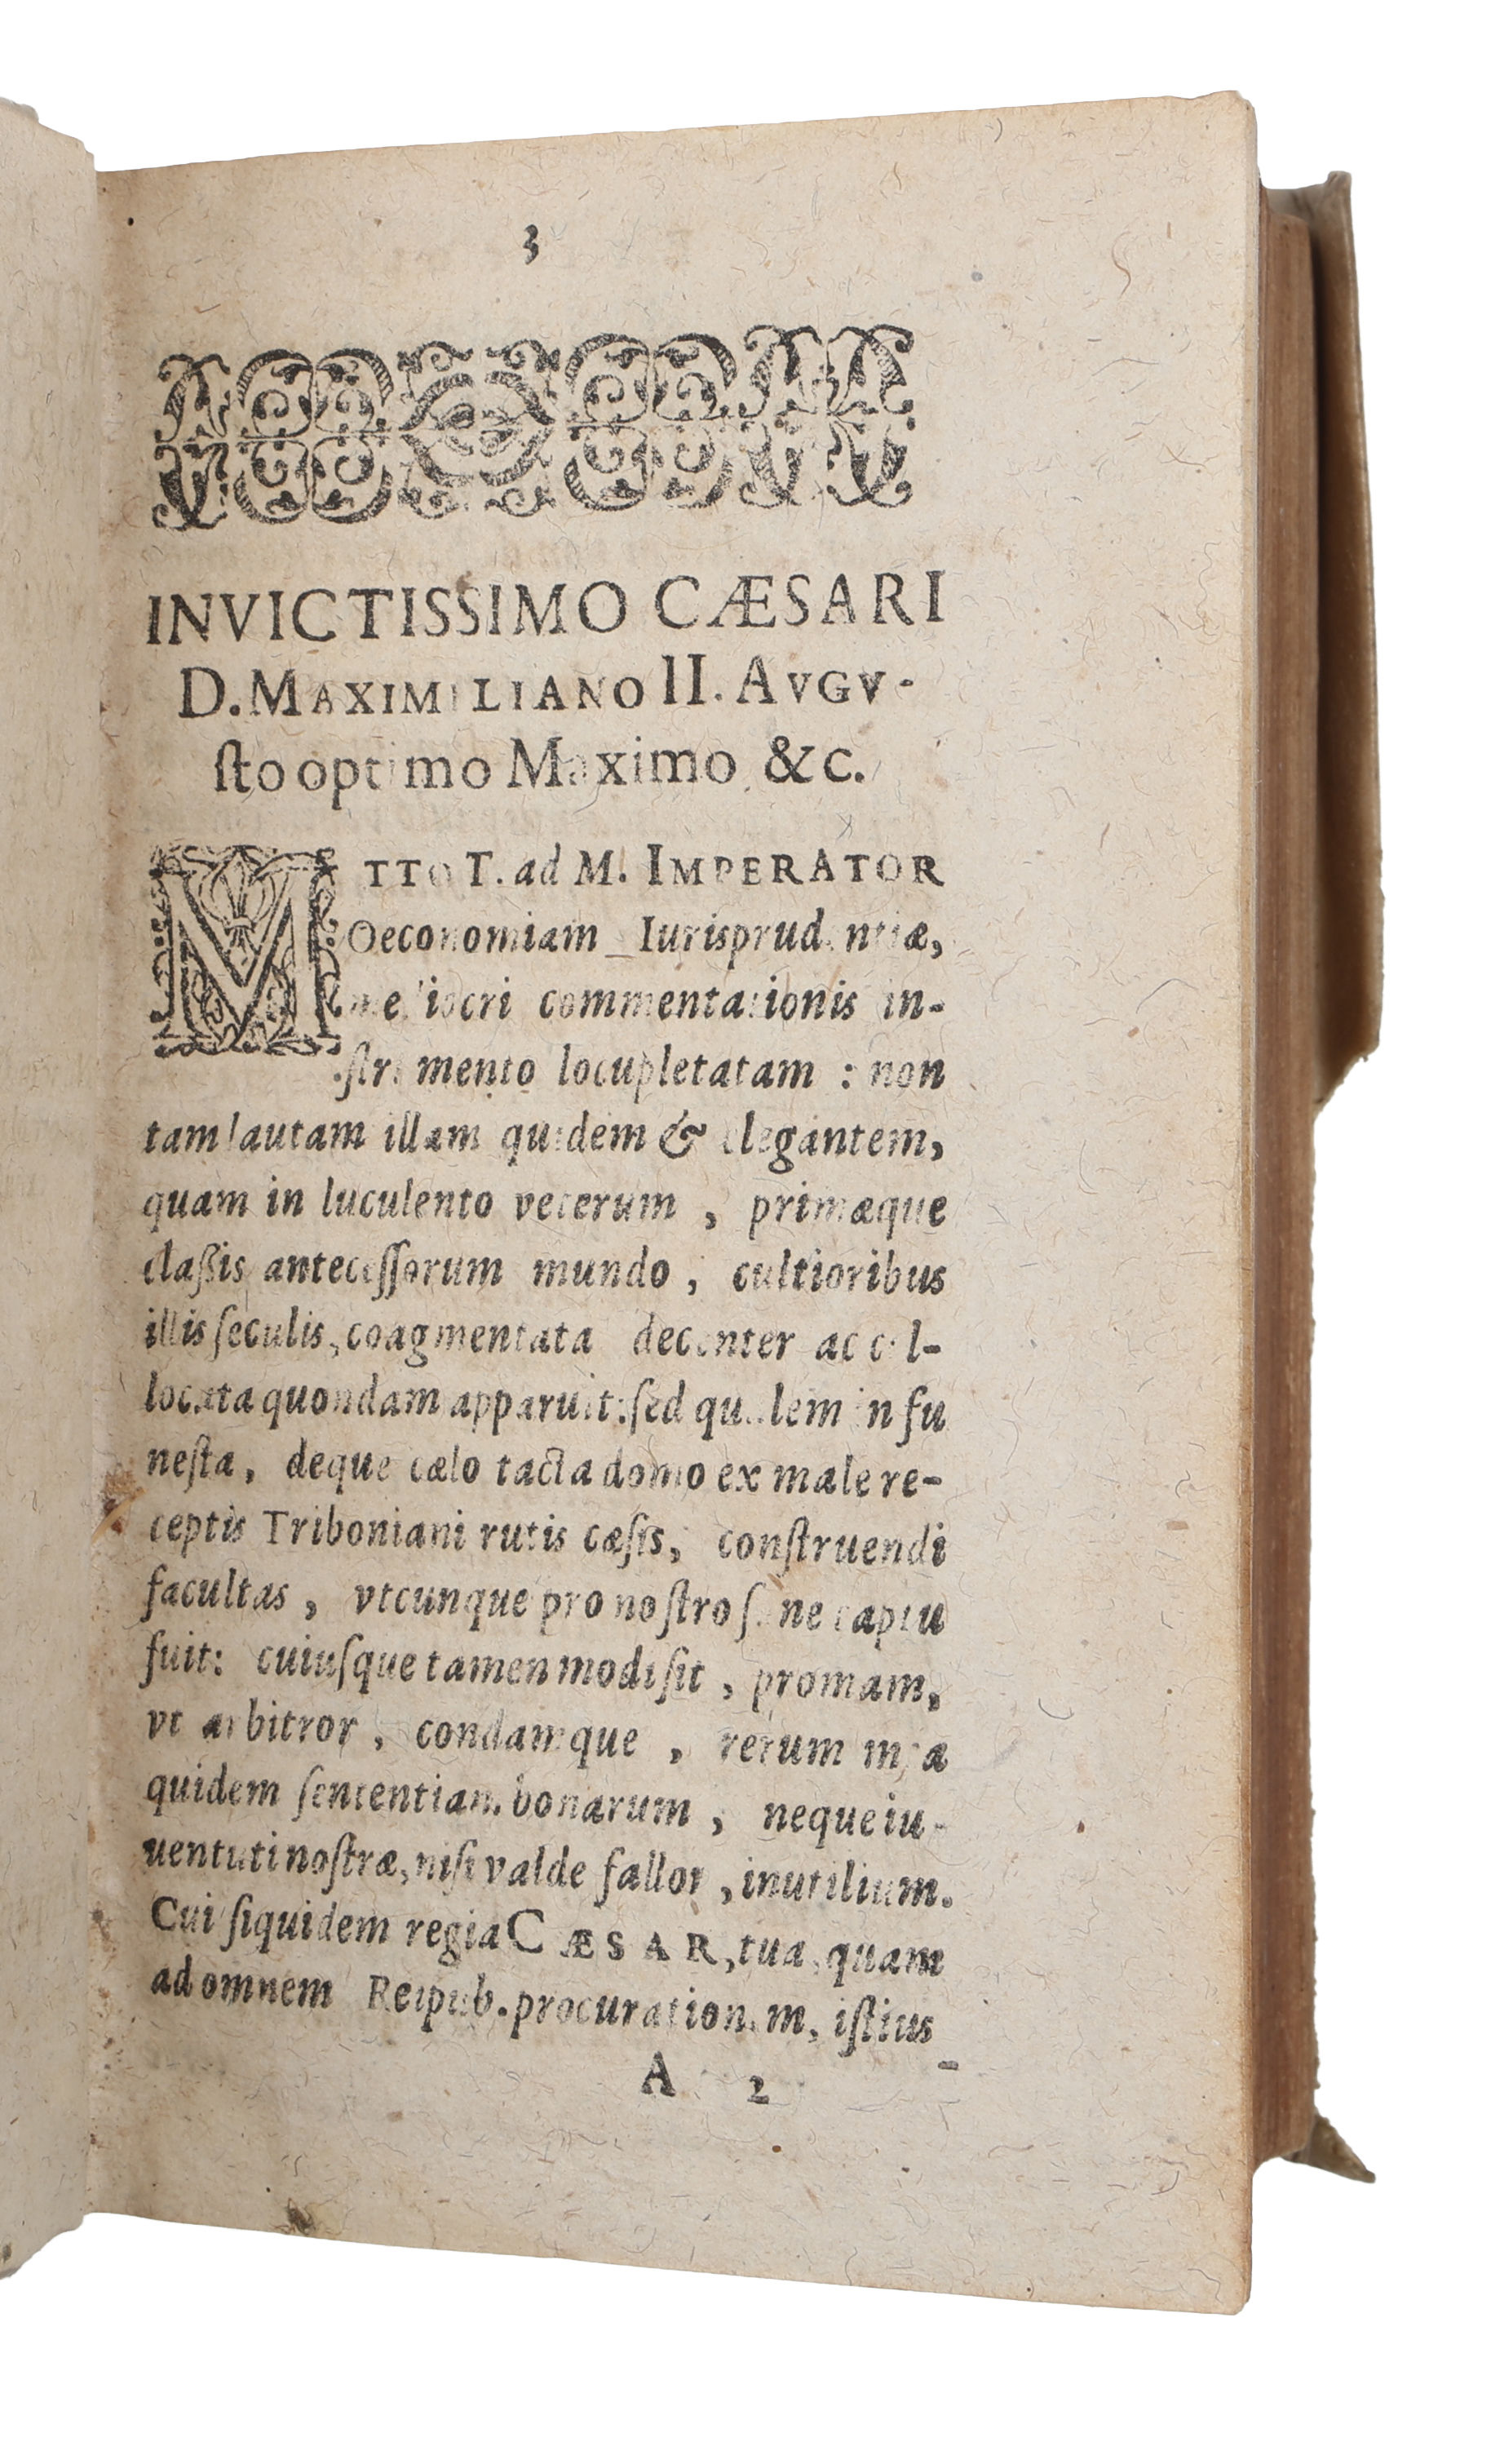 3
INVICTISSIMO CÆSARI
D. MAXIMILIANO II. AVGV-
ſto optimo Maximo &c.
MITTO T. ad M. IMPERATOR
Oeconomiam Iurisprudentiæ,
mediocri commentationis in-
ſtrumento locupletatam : non
tam lautam illam quidem & elegantem,
quam in luculento veterum , primæque
claßis anteceſſorum mundo , cultioribus
illis ſeculis, coagmentata decenter ac col-
locata quondam apparuit: ſed qualem in fu
neſta, deque cælo tacta domo ex male re-
ceptis Triboniani rutis cæſis, conſtruendi
facultas , vtcunque pro noſtro ſane captu
fuit: cuiuſque tamen modi ſit , promam,
vt arbitror , condamque , rerum mea
quidem ſententiam bonarum , neque iu-
uentuti noſtræ, niſi valde fallor , inutilium.
Cui ſiquidem regia CÆSAR, tua, quam
ad omnem Reipub. procurationem, iſtius
A 2 -